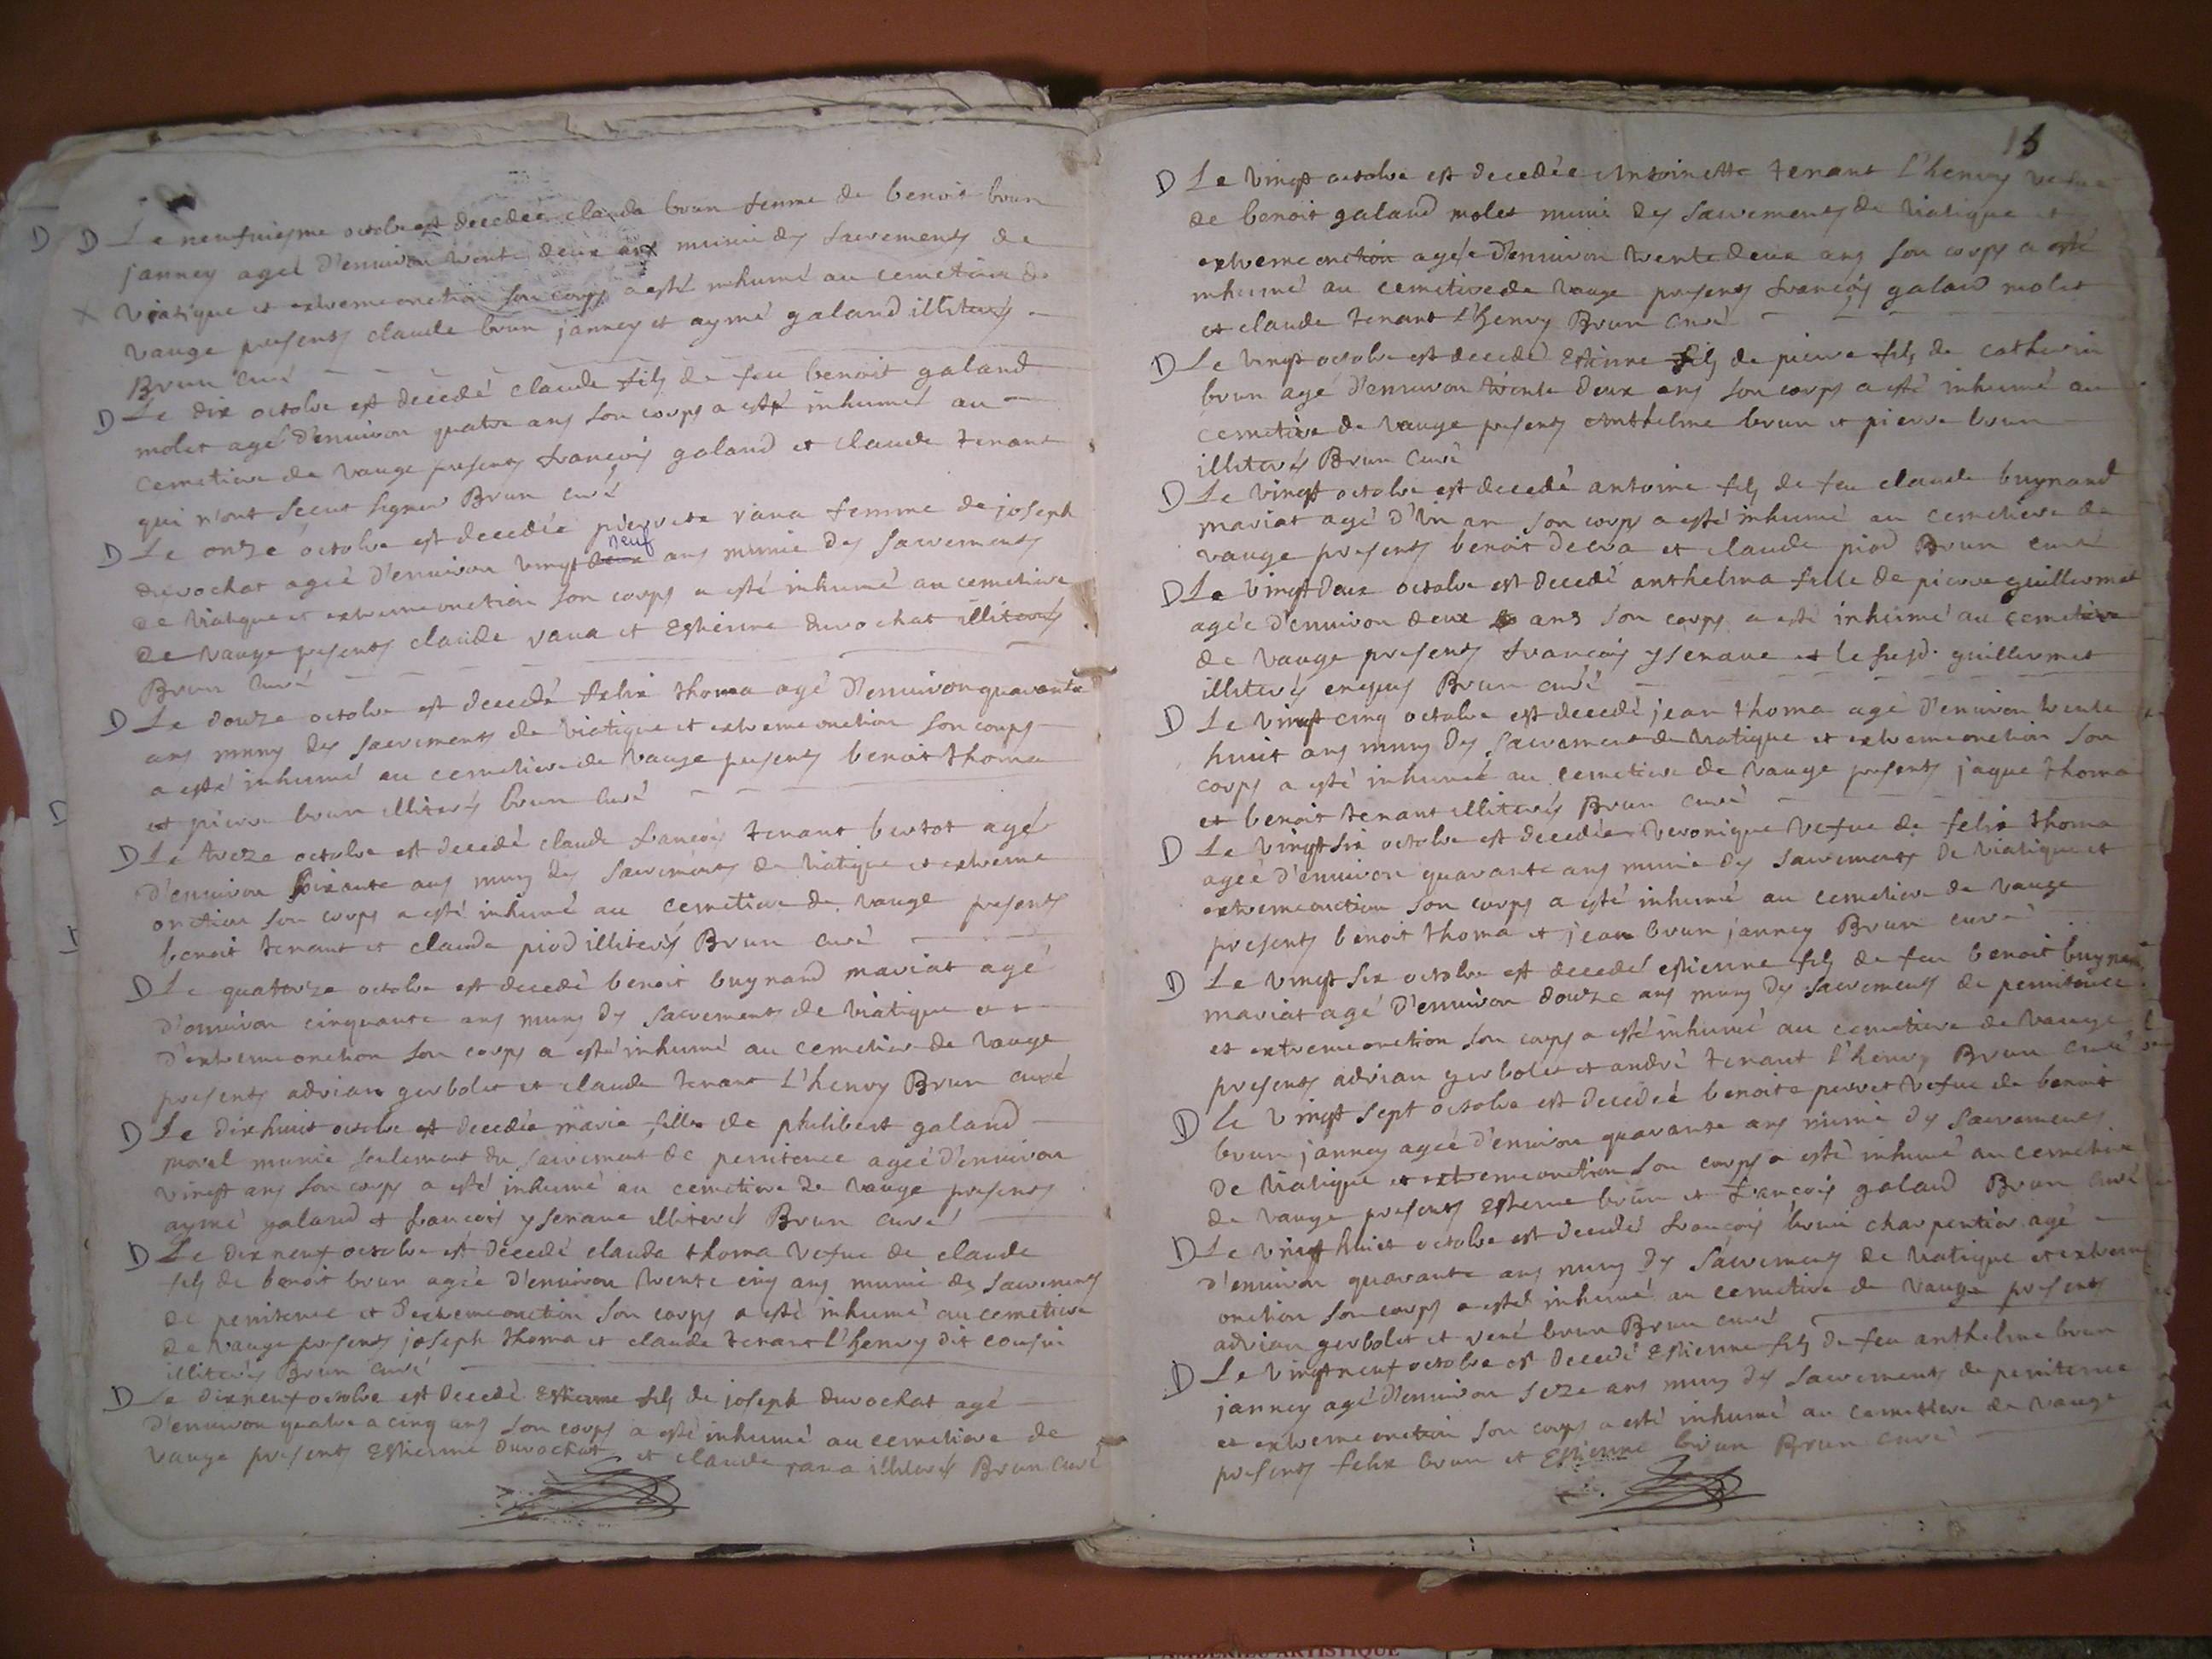 D D Le neufviesme octobre est decedée clauda brun femme de benoit brun
janney ageé d'environ trente deux ans munie des sacrements de
viatique et extremeonction son corps a esté inhumé au cemetiere de
vauge presents claude brun janney et aymé galand illiterés
Brun curé
D Le dix octobre est decedé claude fils de feu benoit galand
molet agé d'environ quatre ans son corps a esté inhumé au
cemetiere de vauge presents françois galand et claude tenant
qui n'ont sceut signer Brun curé
D Le onze octobre est decedée pierrete rana femme de joseph
neuf
durochat ageé d'environ vingt deux ans munie des sacrements
de viatique et extremeonction son corps a esté inhumé au cemetiere
de vauge presents claude rana et Estienne durochat illiterés
Brun curé
D Le douze octobre est decedé felix thoma agé d'environ quarante
ans muny des sacrements de viatique et extremeonction son corps
a esté inhumé au cemetiere de vauge presents benoit thoma
et pierre brun illiterés brun curé
D Le treze octobre est decedé claude françois tenant bertot agé
d'environ soixante ans muny des sacrements de viatique et extreme
onction son corps a esté inhumé au cemetiere de vauge presents
benoit tenant et claude piod illiterés Brun curé
D Le quatorze octobre est decedé benoit buynand mariat agé
d'environ cinquante ans muny des sacrements de viatique et
d'extremeonction son corps a esté inhumé au cemetiere de vauge
presents adrian gerbolet et claude tenant l'henry Brun curé
D Le dixhuit octobre est decedée marie fille de philibert galand
morel munie seulement du sacrement de penitence ageé d'environ
vingt ans son corps a esté inhumé au cemetiere de vauge presents
aymé galand et françois ysenave illiterés Brun curé
D Le dix neuf octobre est decedé clauda thoma vefue de claude
fils de benoit brun ageé d'environ trente cinq ans munie des sacrements
de penitence et d'extremeonction son corps a esté inhumé au cemetiere
de vauge presents joseph thoma et claude tenant l'henry dit cousin
illiterés Brun curé
D Le dixneuf octobre est decedé Estienne fils de joseph durochat agé
d'environ quatre a cinq ans son corps a esté inhumé au cemetiere de
vauge presents Estienne durochat et claude rana illiterés Brun curé
15
D Le vingt octobre est decedée Antoinette tenant l'henry vefue
de benoit galand molet munie des sacrements de viatique et
extremeonction ageé d'environ trente deux ans son corps a esté
inhumé au cemetiere de vauge presents françois galand molet
et claude tenant l'henry Brun curé
D Le vingt octobre est decedé Etienne fils de pierre fils de catherin
brun agé d'environ trente deux ans son corps a esté inhumé au
cemetiere de vauge presents Anthelme brun et pierre brun
illiterés Brun curé
D Le vingt octobre est decedé antoine fils de feu claude buynand
mariat agé d'un an son corps a esté inhumé au cemetiere de
vauge presents benoit decra et claude piod Brun curé
D Le vingt deux octobre est decedé anthelma fille de pierre guillermet
ageé d'environ deux ans son corps a esté inhumé au cemetiere
de vauge presents françois ysenave et le susd. guillermet
illiterés enquis Brun curé
D Le vingt cinq octobre est decedé jean thoma agé d'environ trente
huit ans muny des sacrement de viatique et extremeonction son
corps a esté inhumé au cemetiere de vauge presents jaque thoma
et benoit tenant illiterés Brun curé
D Le vingt six octobre est decedée veronique vefue de felix thoma
ageé d'environ quarante ans munie des sacrements de viatique et
extremeonction son corps a esté inhumé au cemetiere de vauge
presents benoit thoma et jean brun janney Brun curé
D Le vingt six octobre est decedé estienne fils de feu benoit buynand
mariat agé d'environ douze ans muny des sacrements de penitence
et extremeonction son corps a esté inhumé au cemetiere de vauge
presents adrian gerbolet et andré tenant l'henry Brun curé
D Le vingt sept octobre est decedée benoite perret vefue de benoit
brun janney ageé d'environ quarante ans munie des sacrements
de viatique et extremeonction son corps a esté inhumé au cemetiere
de vauge presents Estienne brun et françois galand Brun curé
D Le vingt huict octobre est decedé françois brun charpentier agé
d'environ quarante ans muny des sacrements de viatique et extreme
onction son corps a esté inhumé au cemetiere de vauge presents
adrian gerbolet et rené brun Brun curé
D Le vingt neuf octobre est decedé Estienne fils de feu anthelme brun
janney agé d'environ seze ans muny des sacrements de penitence
et extremeonction son corps a esté inhumé au cemetiere de vauge
presents felix brun et Estienne brun Brun curé